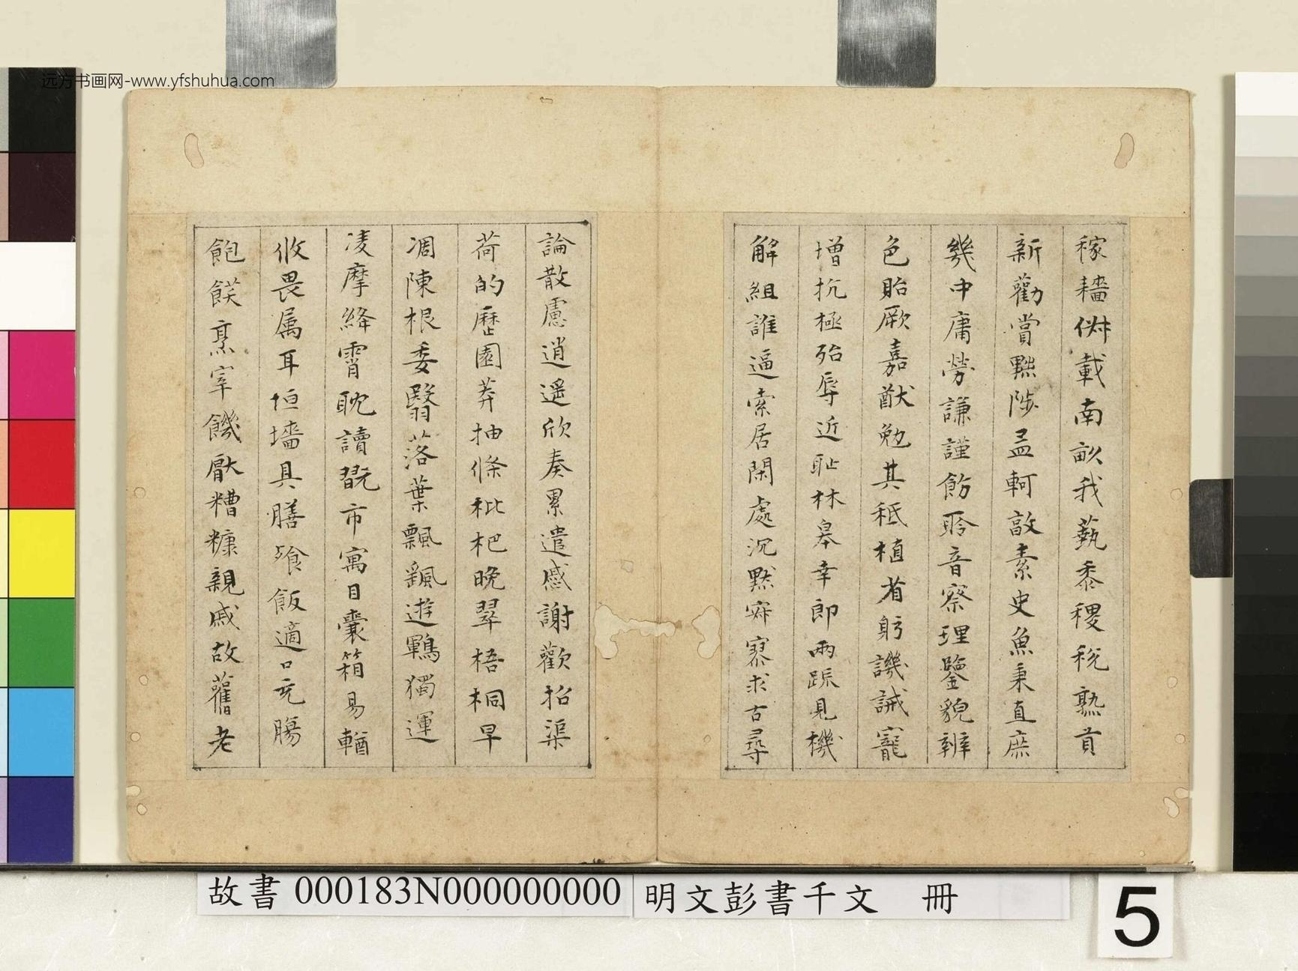 远方书画网-www.yfshuhua.com
稼穡俶載南畝我蓺黍稷稅熟貢
新勸賞黜陟孟軻敦素史魚秉直庶
幾中庸勞謙謹飭聆音察理鑒貌辨
色貽厥嘉猷勉其秪植省躬譏誡寵
增抗極殆辱近耻林皋幸即兩疏見機
解組誰逼索居閑處沉默寂寥求古尋
論散慮逍遥欣奏累遣慼謝歡招渠
荷的歷園莽抽條枇杷晚翠梧桐早
凋陳根委翳落葉飄颻遊鵾獨運
凌摩絳霄耽讀翫市寓目囊箱易輶
攸畏属耳垣墻具膳飡飯適口充腸
飽飫烹宰饑厭糟糠親戚故舊老
故書 000183N000000000 明文彭書千文 冊
5